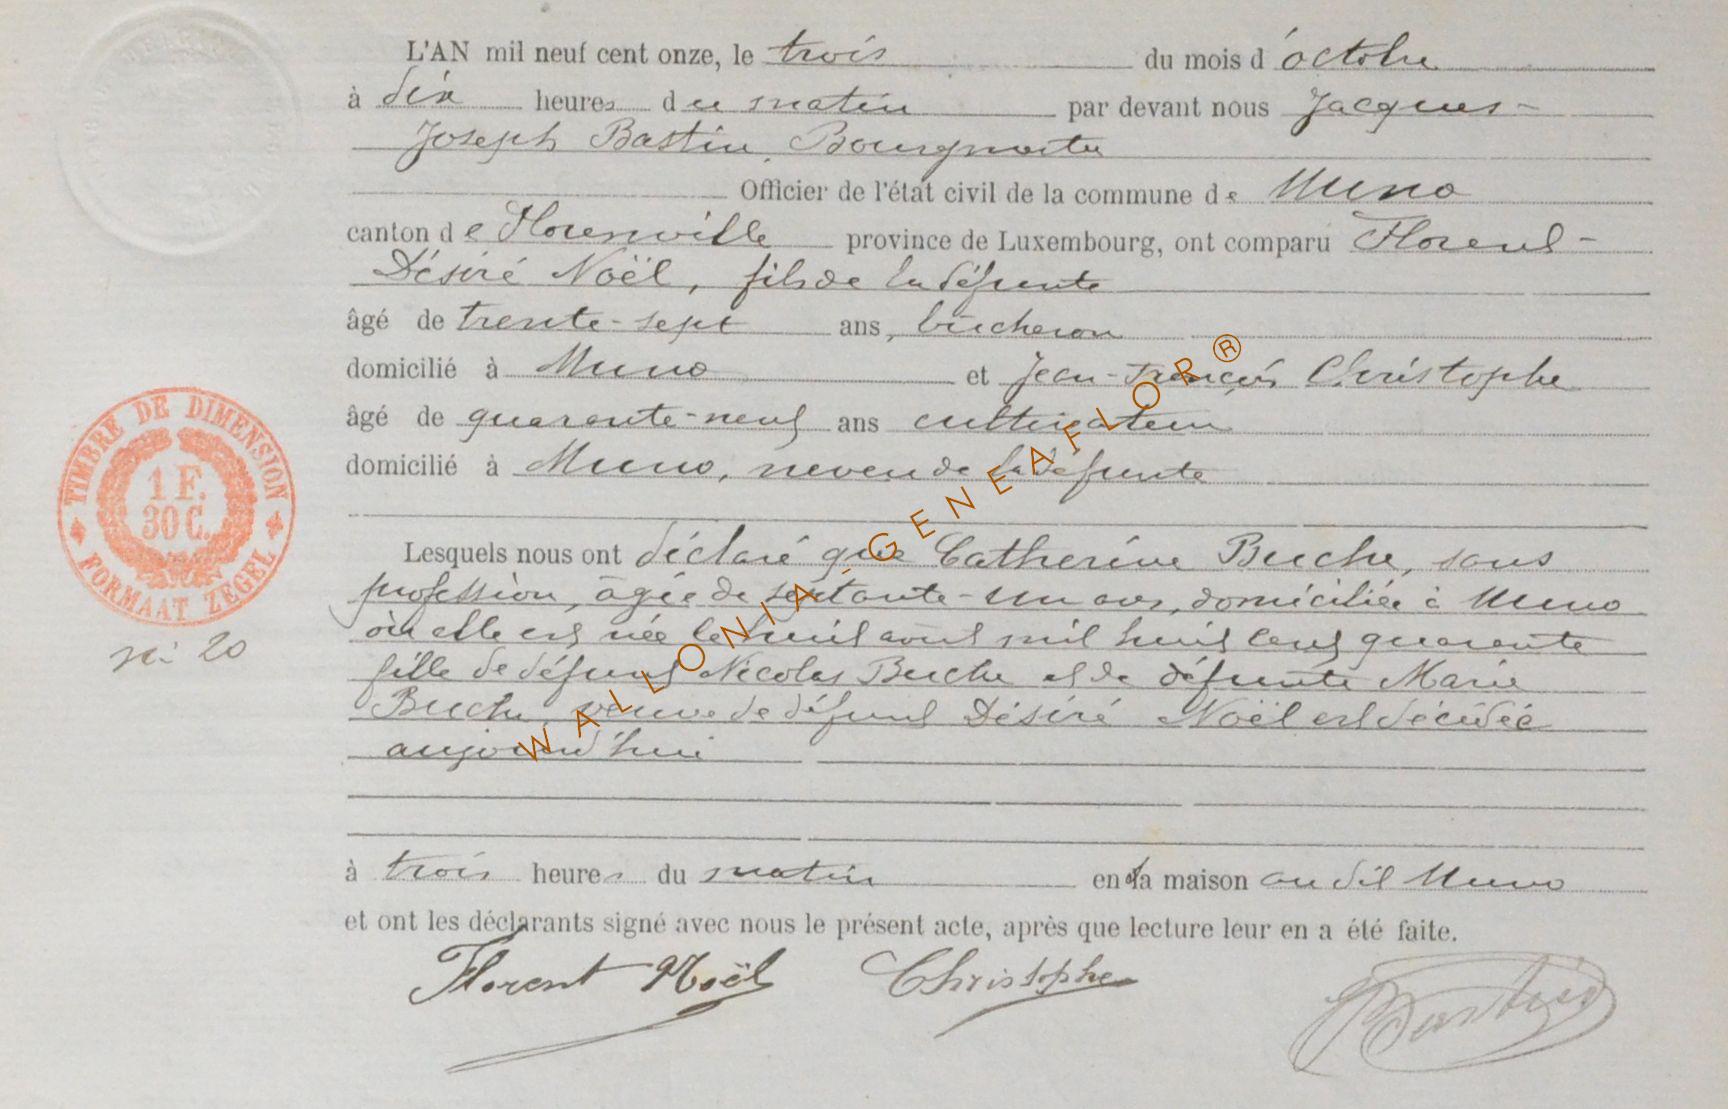 L'AN mil neuf cent onze, le trois du mois d'octobre
à dix heures du matin par devant nous Jacques-
Joseph Bastin, Bourgmestre
Officier de l'état civil de la commune de Muno
canton de Florenville province de Luxembourg, ont comparu Florent-
Désiré Noël, fils de la défunte
âgé de trente-sept ans, bûcheron
domicilié à Muno et Jean-François Christophe
âgé de quarante-neuf ans cultivateur
domicilié à Muno, neveu de la défunte
Lesquels nous ont déclaré que Catherine Buche, sans
profession, âgée de septante-un ans, domiciliée à Muno
où elle est née le huit août mil huit cent quarante
fille de défunt Nicolas Buche et de défunte Marie
Buche veuve de défunt Désiré Noël est décédée
aujourd'hui
à trois heures du matin en la maison au dit Muno
et ont les déclarants signé avec nous le présent acte, après que lecture leur en a été faite.
Florent Noël Christophe JBastin
TIMBRE DE DIMENSION
1 F.
30 C.
FORMAAT ZEGEL
n° 20
WALLONIA-GENEAFLOR®